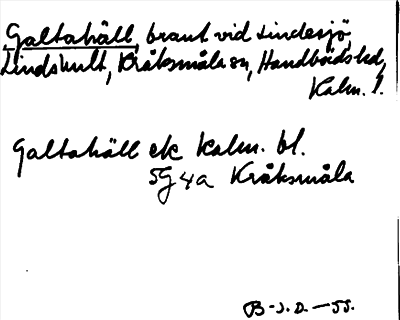 Galtahäll, brant vid Lindesjö,
Lindshult, Kråksmåla sn, Handbörds hd,
Kalm. l.
Galtahäll ek Kalm. bl.
5G 4a Kråksmåla
B-J.D.-55.